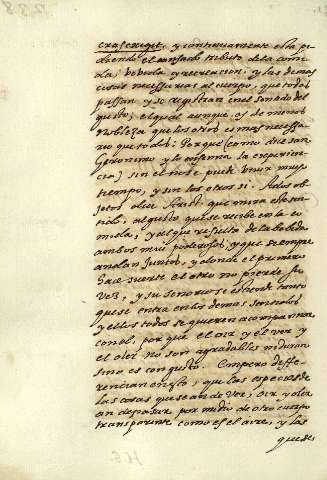 cras exiget, y continuamente esta pi
diendo el cansado tributo de la comi
da, bebida y recreacion, y las demas
cosas necessarias al cuerpo, que todas
passan y se registran en el sentido del
gusto; el qual aunque es de menos
nobleza que los otros es mas necessa
rio que todos: Porque (como dice san
Geronimo y lo enseña la experien
cia) sin el no se puede vivir mucho
tiempo, y sin los otros si. A dos ob
jetos dice que mira este sen
tido, al gusto que se recibe en la co
mida, y al que resulta de la bebida
ambos mui poderosos, y que siempre
andan juntos, y donde el primero
hace suerte el otro no pierde su
vez, y su señorio se estiende tanto
que se entra en los demas sentidos
y ellos todos se quieren acompañar
con el, por que el oir y el ver y
el oler no son agradables ni duran
sino es con gusto. Empero diffe
rencian en esto, que las especias de
las cosas que se an de ver, oir y oler
an de passar por medio de otro cuerpo
transparente como es el aire, y las
que de